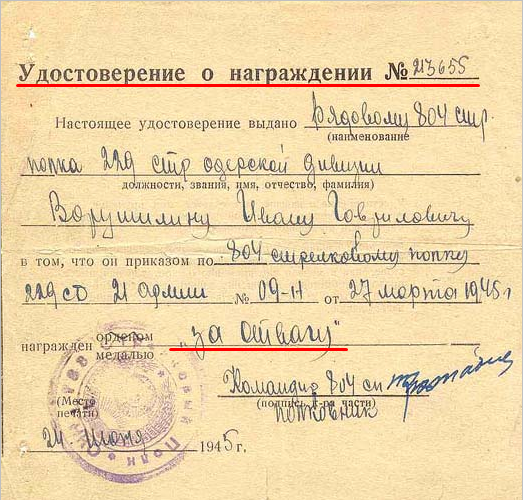 Удостоверение о награждении № 213655
Настоящее удостоверение выдано Рядовому 804 стр.
(наименование
полка 229 стр одерской дивизии
должности, звания, имя, отчество, фамилия)
Ворушилину Ивану Гавриловичу
в том, что он приказом по 804 стрелковому полку
229 сд 21 армии № 09-н от 27 марта 1945 г
награжден орденом
медалью "За отвагу"
Командир 804 сп
(Место
печати)
(подпись к-ра части)
полковник
24 Июня 1945 г.